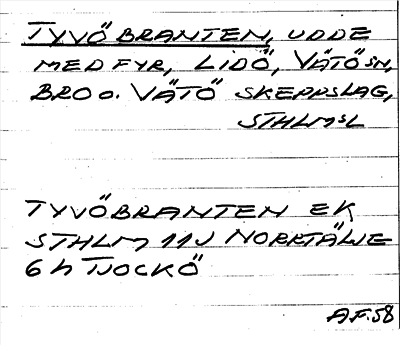 TYVÖBRANTEN, UDDE
MED FYR, LIDÖ, VÄTÖ SN,
BRO O. VÄTÖ SKEPPSLAG,
STHLMSL
TYVÖBRANTEN EK
STHLM 11J NORRTÄLJE
6 h TJOCKÖ
AF.58